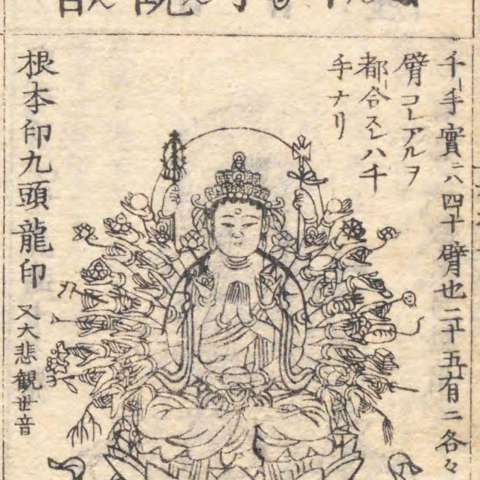 千手實ニハ四十臂也二十五有ニ各々
臂コレアルヲ
都合スレハ千
手ナリ
根本印九頭龍印 又大悲観世音